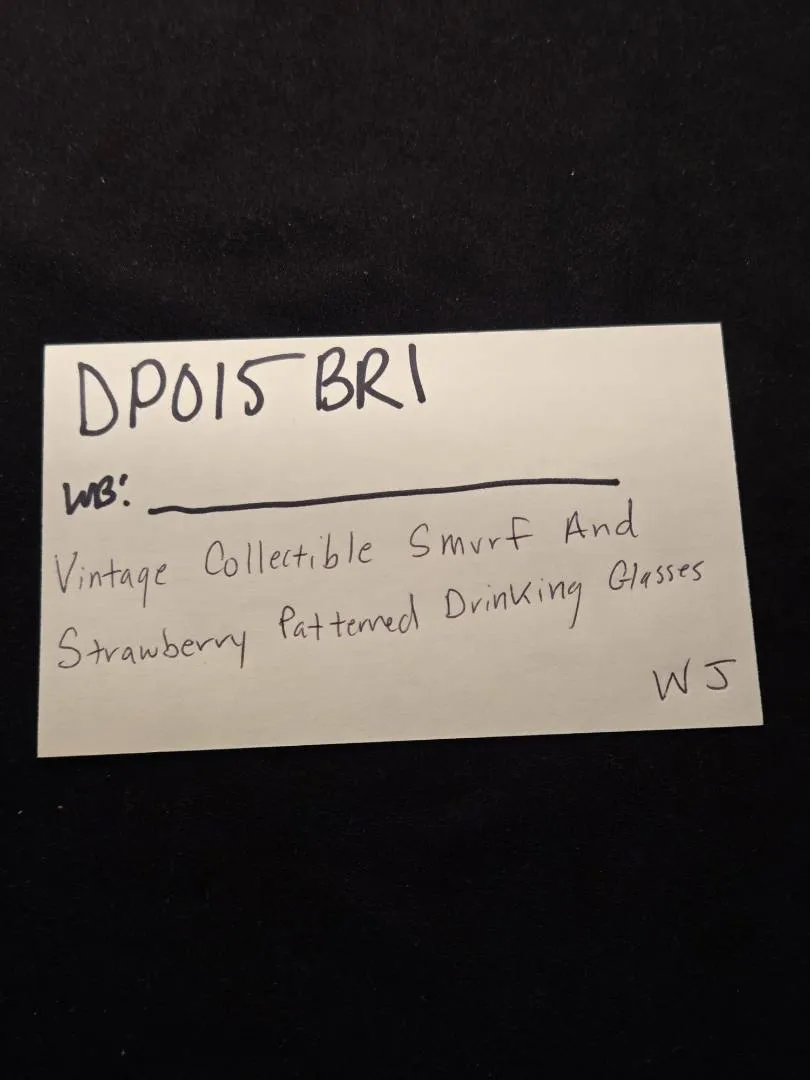 DP015 BR1
WB: ____________
Vintage Collectible Smurf And
Strawberry Patterned Drinking Glasses
WJ